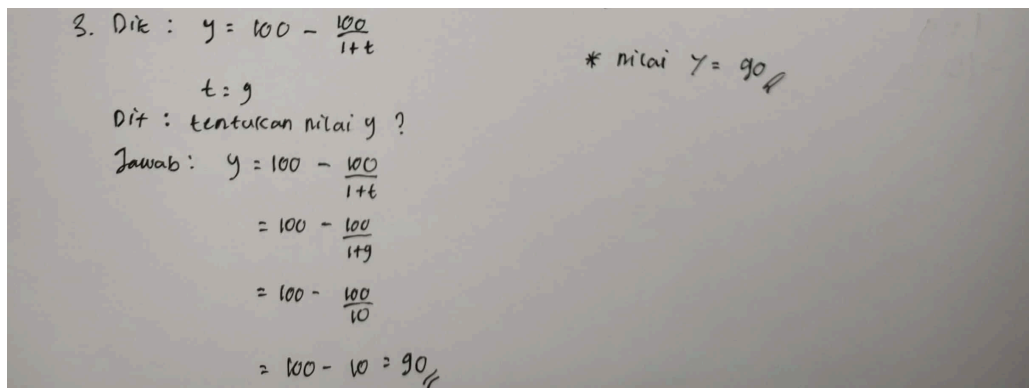 3. Dik : y = 100 - 100/1+t
t = 9
Dit : tentukan nilai y ?
Jawab : y = 100 - 100/1+t
= 100 - 100/1+9
= 100 - 100/10
= 100 - 10 = 90//
* nilai Y = 90//